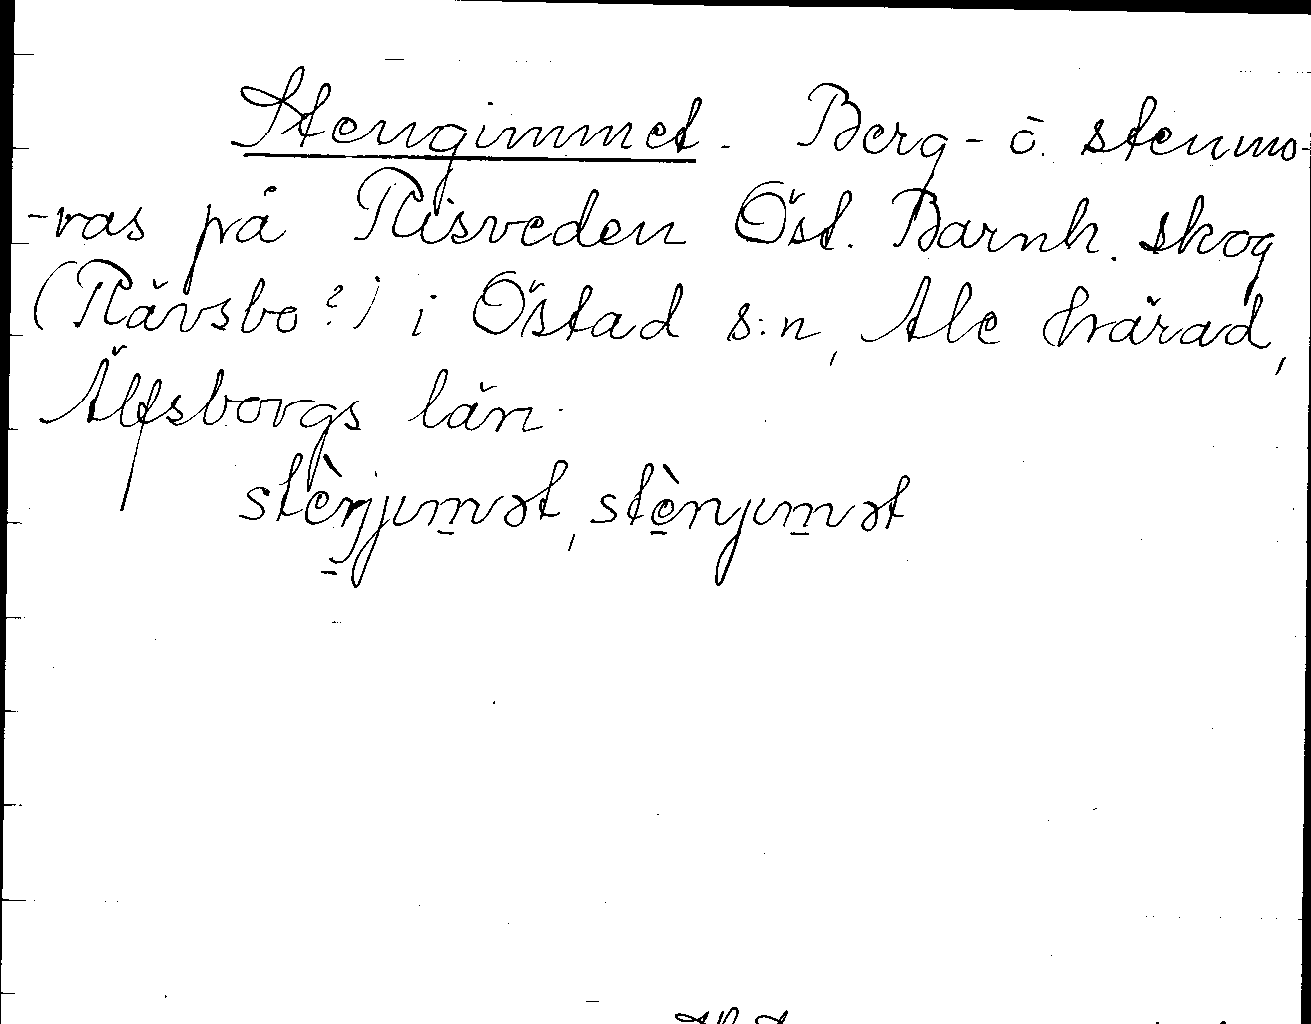 Stengimmet. Berg- o. stenmo-
-ras på Risveden Öst. Barnh. skog
(Rävsbo?) i Östad s:n, Ale härad,
Älfsborgs län.
stèŋjɩmət, stènjɩmət